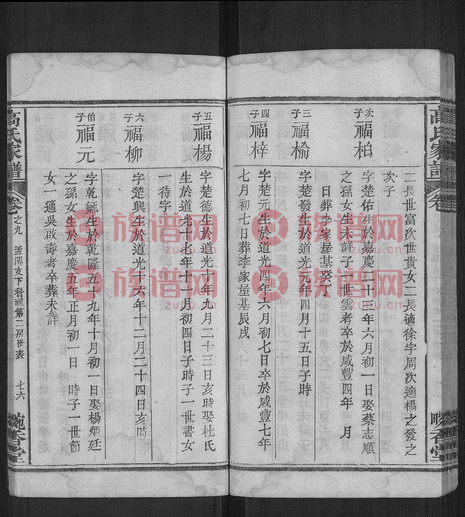 高氏家譜
卷
晩香堂
二長世富次世貴女二長適徐字周次適楊之發之
次子
次子 福柏
字楚佑生於嘉慶二十三年六月初一日娶蔡志順
之孫女生未詳子一世雲者卒於咸豐四年 月
日葬李家屋基癸丁
三子 福榆
字楚發生於道光四年四月十五日子時
四子 福梓
字楚元生於道光四年六月初七日卒於咸豐七年
七月初七日葬李家屋基辰戌
五子 福楊
字楚德生於道光十年九月二十三日亥時娶杜氏
生於道光十七年十二月初四日子時子一世書女
一待字
六子 福柳
字楚興生於道光十六年十二月二十四日亥時
伯子 福元
字乾 生於乾隆五十九年十月初一日娶楊 廷
之孫女生於嘉慶五年正月初一日 時子一世節
女一適吳啟壽者卒葬未詳
高氏家譜
卷之九 下 祖第二 世表
七六
晩香堂
族谱网
族谱网
族谱网
族谱网